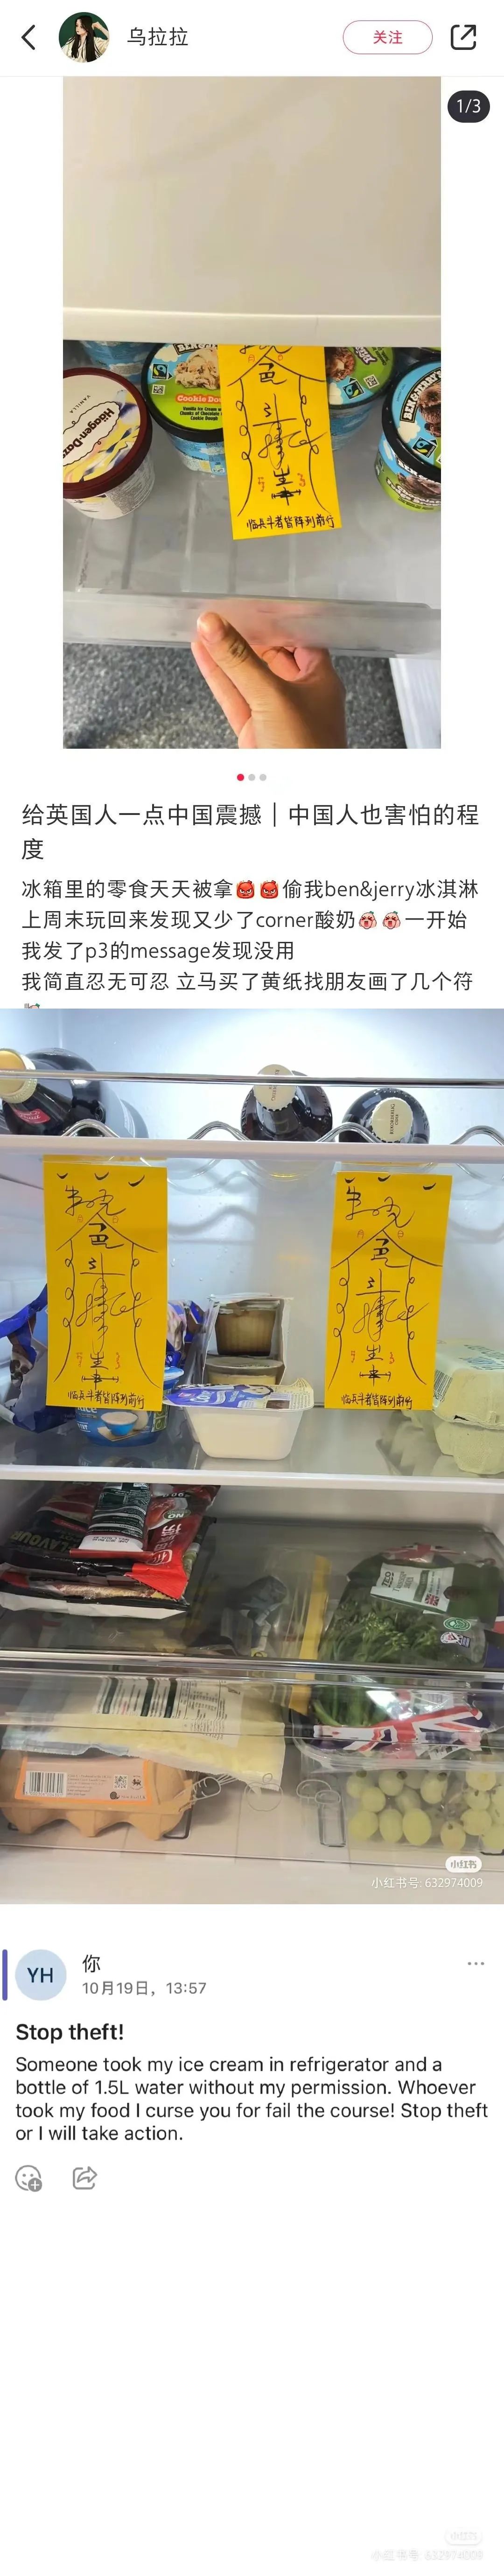 乌拉拉
关注
1/3
VANILLA
Häagen-Dazs
Cookie Dough
Vanilla Ice Cream with
Chunks of Chocolate Chip
Cookie Dough
BEN & JERRY'S
临兵斗者皆阵列前行
给英国人一点中国震撼｜中国人也害怕的程
度
冰箱里的零食天天被拿👹👹偷我ben&jerry冰淇淋
上周末玩回来发现又少了corner酸奶🐷🐷一开始
我发了p3的message发现没用
我简直忍无可忍 立马买了黄纸找朋友画了几个符
临兵斗者皆阵列前行
临兵斗者皆阵列前行
小红书
小红书号: 632974009
YH
你
10月19日，13:57
Stop theft!
Someone took my ice cream in refrigerator and a
bottle of 1.5L water without my permission. Whoever
took my food I curse you for fail the course! Stop theft
or I will take action.
小红书
小红书号: 632974009